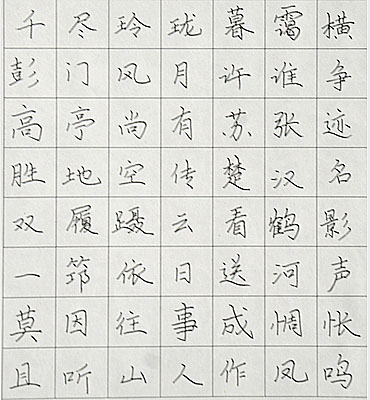 千尽玲珑暮霭横
彭门风月许谁争
高亭尚有苏张迹
胜地空传楚汉名
双履蹑云看鹤影
一筇依日送河声
莫因往事成惆怅
且听山人作凤鸣